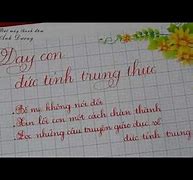 Dạy con
đức tính trung thực
. Bố mẹ không nói dối
. Xin lỗi con một cách chân thành
. Đọc những câu truyện giáo dục về
đức tính trung thực